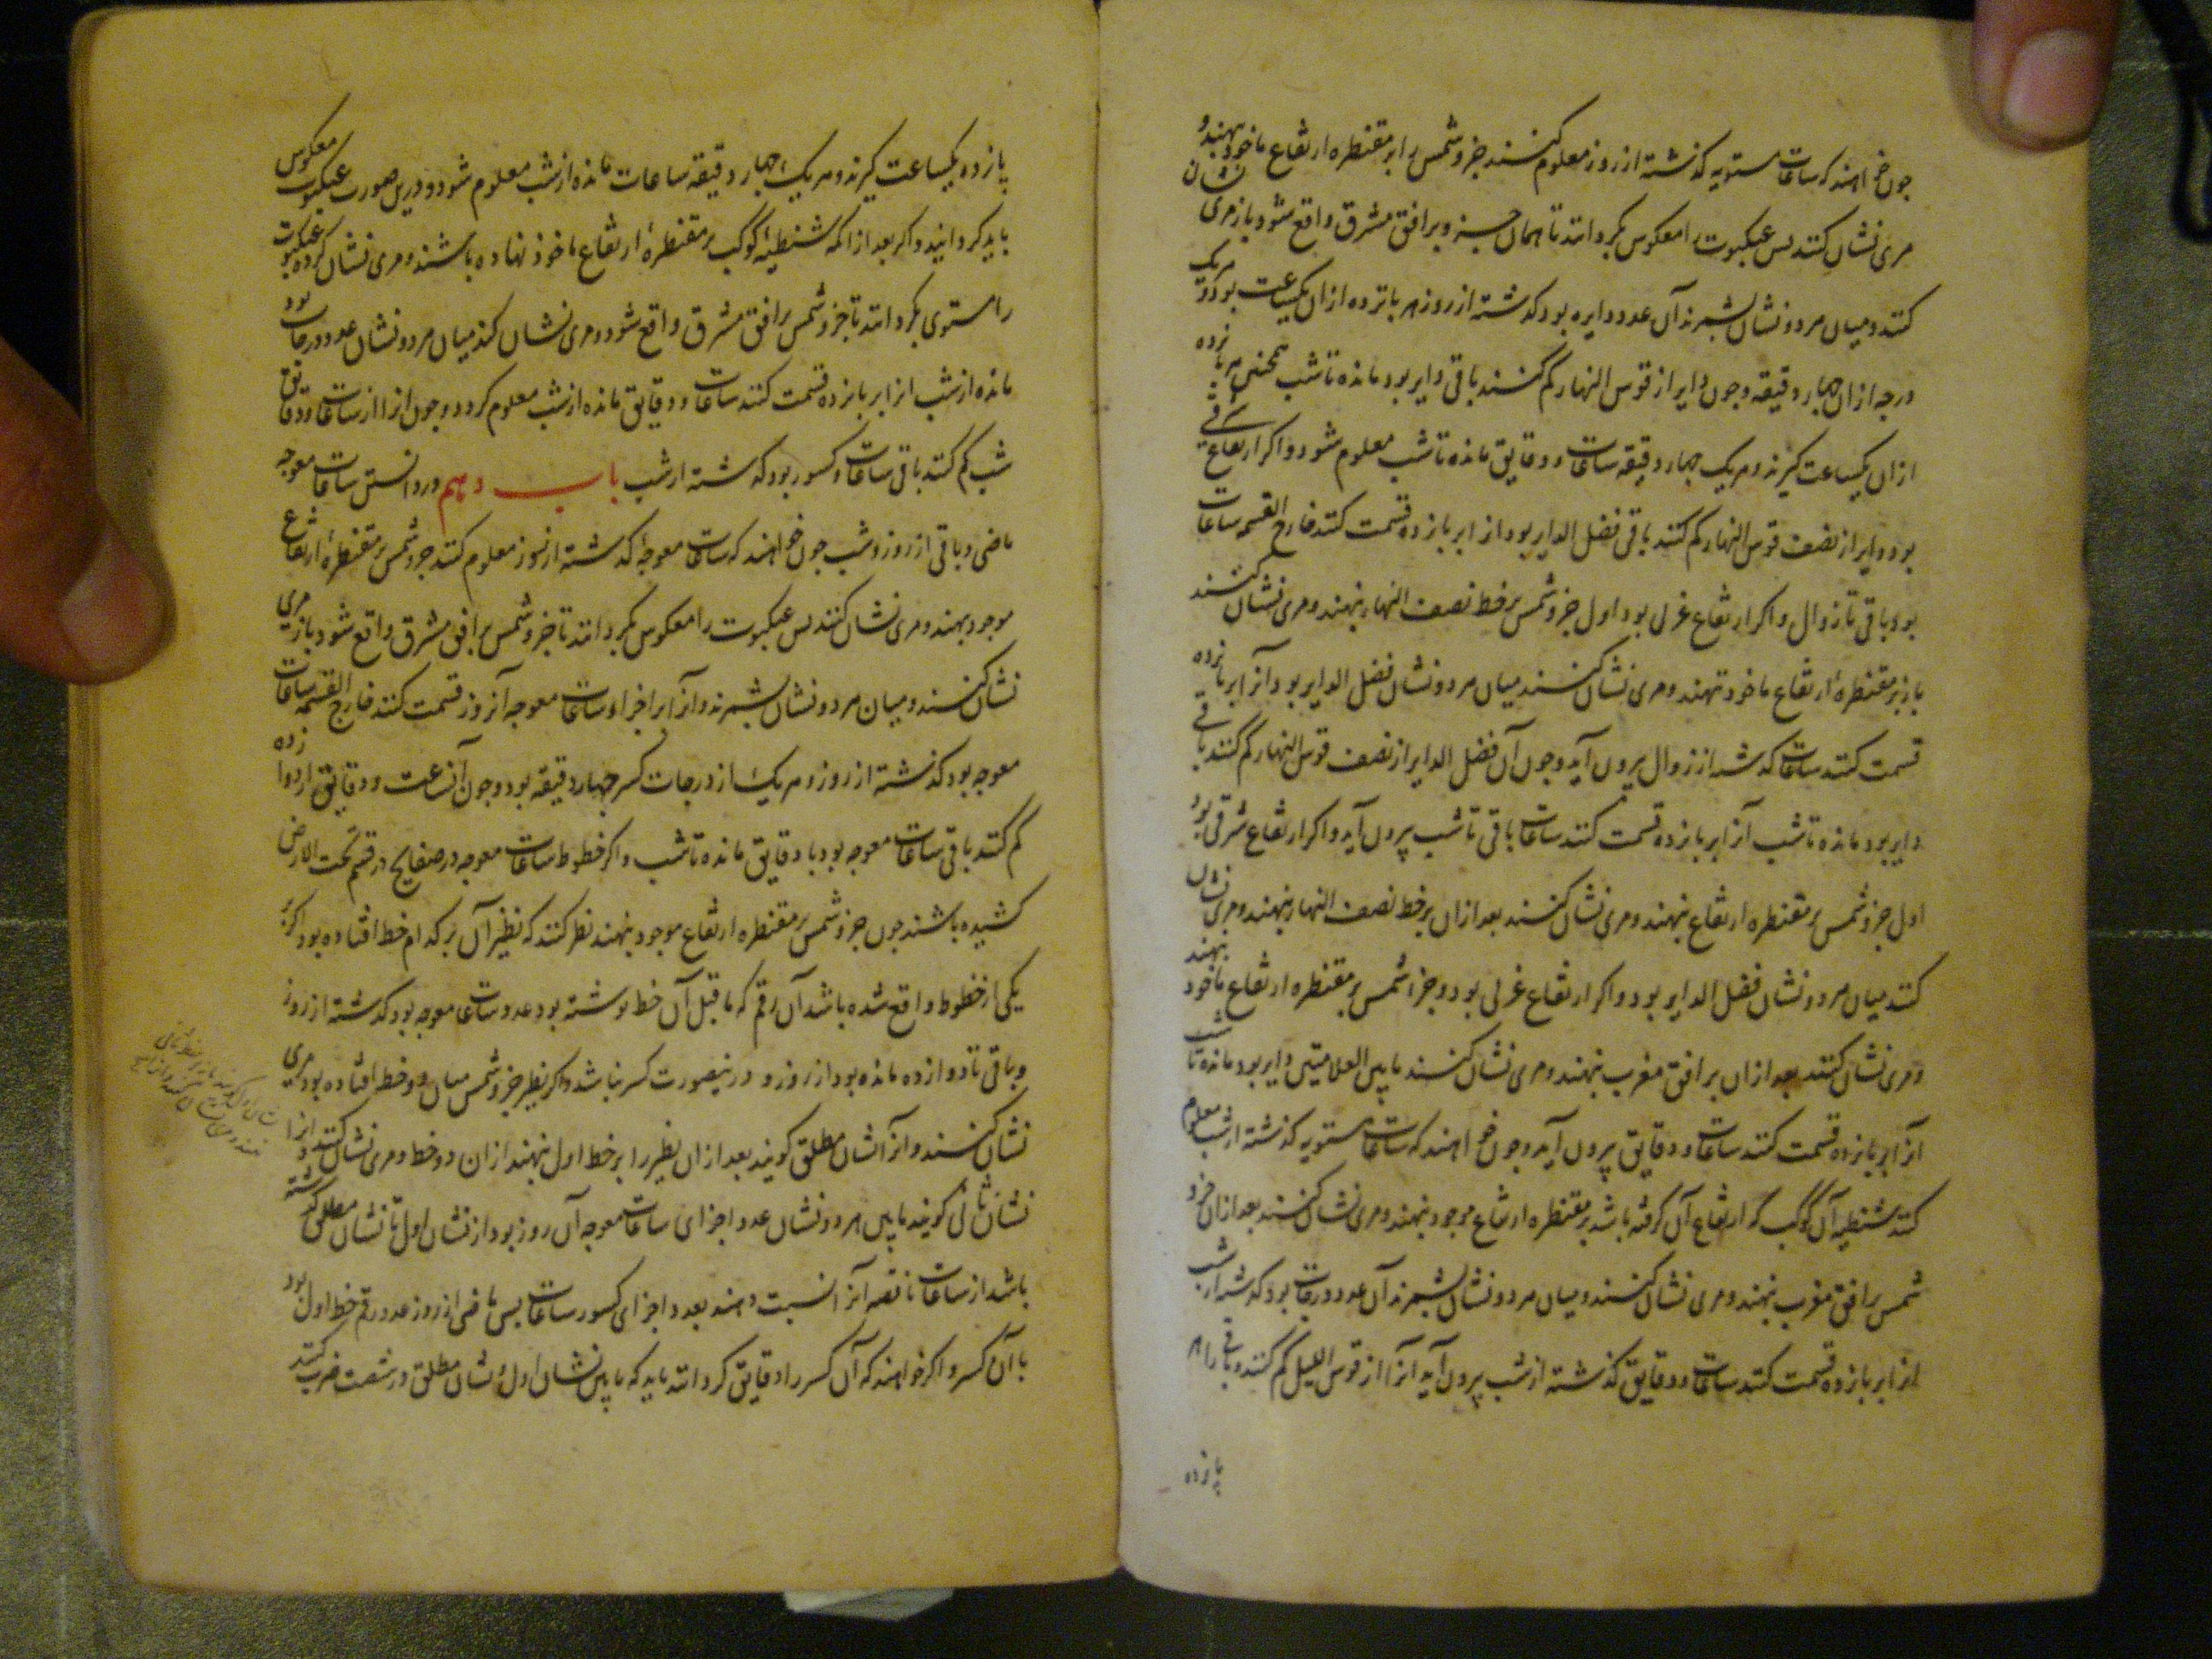 چون خواهند که ساعات مستویه گذشته از روز معلوم کنند جزو شمس را بر مقنطره ارتفاع ماخوذ بنهند و
مری نشان کنند پس عنکبوت را معکوس بگردانند تا همان جزو بر افق مشرق واقع شود باز مری نشان
کنند و میان هر دو نشان بشمرند آن عدد دایره بود گذشته از روز هر پانزده ازان یکساعت بود و هر یک
درجه ازان چهار دقیقه و چون دایر از قوس النهار کم کنند باقی دایر بود مانده تا شب همچنین هر پانزده
ازان یکساعت گیرند و هر یک چهار دقیقه ساعات و دقایق مانده تا شب معلوم شود و اگر ارتفاع شرقی
بود دایر از نصف قوس النهار کم کنند باقی فضل الدایر بود از ابر پانزده قسمت کنند خارج القسمه ساعات
بود باقی تا زوال و اگر ارتفاع غربی بود اول جزو شمس بر خط نصف النهار بنهند و مری نشان کنند
باز بر مقنطرهٔ ارتفاع ماخوذ بنهند و مری نشان کنند میان هر دو نشان فضل الدایر بود آنرا بر پانزده
قسمت کنند ساعات گذشته از زوال بیرون آید و چون آن فضل الدایر از نصف قوس النهار کم کنند باقی
دایر بود مانده تا شب آنرا بر پانزده قسمت کنند ساعات باقی تا شب بیرون آید و اگر ارتفاع شرقی بود
اول جزو شمس بر مقنطره ارتفاع بنهند و مری نشان کنند بعد ازان بر خط نصف النهار بنهند و مری نشان
کنند میان هر دو نشان فضل الدایر بود و اگر ارتفاع غربی بود و جزا شمس بر مقنطره ارتفاع ماخوذ بنهند
و مری نشان کنند بعد ازان بر افق مغرب بنهند و مری نشان کنند ما بین العلامتین دایر بود مانده تا شب
آنرا بر پانزده قسمت کنند ساعات و دقایق بیرون آید و چون خواهند که ساعات مستویه گذشته از شب معلوم
کنند شنطیه آن کوکب که ارتفاع آن گرفته باشد بر مقنطره ارتفاع موجود بنهند و مری نشان کنند بعد ازان جزو
شمس بر افق مغرب بنهند و مری نشان کنند و میان هر دو نشان بشمرند آن عدد درجات بود گذشته از شب
از ابر پانزده قسمت کنند ساعات و دقایق گذشته از شب بیرون آید آنرا از قوس اللیل کم کنند و باقی را هر
پانزده
پانزده یکساعت گیرند و هر یک را چهار دقیقه ساعات مانده از شب معلوم شود و درین صورت عنکبوت معکوس
باید گردانید و اگر بعد از آنکه شنطیهٔ کوکب بر مقنطرهٔ ارتفاع ماخوذ نهاده باشند و مری نشان کرده عنکبوت
را مستوی بگردانند تا جزو شمس بر افق مشرق واقع شود و مری نشان کنند میان هر دو نشان عدد درجات بود
مانده از شب از ابر پانزده قسمت کنند ساعات و دقایق مانده از شب معلوم گردد و چون انرا از ساعات و دقایق
شب کم کنند باقی ساعات و کسور بود گذشته از شب باب دهم در دانستن ساعات معوجه
ماضی و باقی از روز و شب چون خواهند که ساعات معوجهٔ گذشته از روز معلوم کنند جزو شمس بر مقنطرهٔ ارتفاع
موجود بنهند و مری نشان کنند پس عنکبوت را معکوس بگردانند تا جزو شمس بر افق مشرق واقع شود باز مری
نشان کنند و میان هر دو نشان بشمرند و آنرا بر اجزاء ساعات معوجه آنروز قسمت کنند خارج القسمه ساعات
معوجه بود گذشته از روز و هر یک از درجات کسر چهار دقیقه بود و چون آن ساعت و دقایق از دوازده
کم کنند باقی ساعات معوجه بود با دقایق مانده تا شب و اگر خطوط ساعات معوجه در صفایح در قسم تحت الارض
کشیده باشند چون جزو شمس بر مقنطره ارتفاع موجود بنهند نظر کنند که نظیر آن بر کدام خط افتاده بود اگر بر
یکی از خطوط واقع شده باشد آن رقم که ما قبل آن خط نوشته بود عدد ساعات معوجه بود گذشته از روز
و باقی تا دوازده مانده بود از روز و درینصورت کسر نباشد و اگر نظیر جزو شمس میان دو خط افتاده بود مری
نشان کنند و آنرا نشان مطلق گویند بعد ازان نظیر را بر خط اول نهند ازان دو خط و مری نشان کنند و انرا
نشان ثانی گویند ما بین هر دو نشان عدد اجزای ساعات معوجه آن روز بود از نشان اول تا نشان مطلق گذشته
باشد از ساعات ناقصه آنرا نسبت دهند بعدد اجزای کسور ساعات پس ماضی از روز عدد رقم خط اول بود
با آن کسر و اگر خواهند که آن کسر را دقایق گردانند باید که ما بین نشان اول و نشان مطلق در شصت ضرب کنند